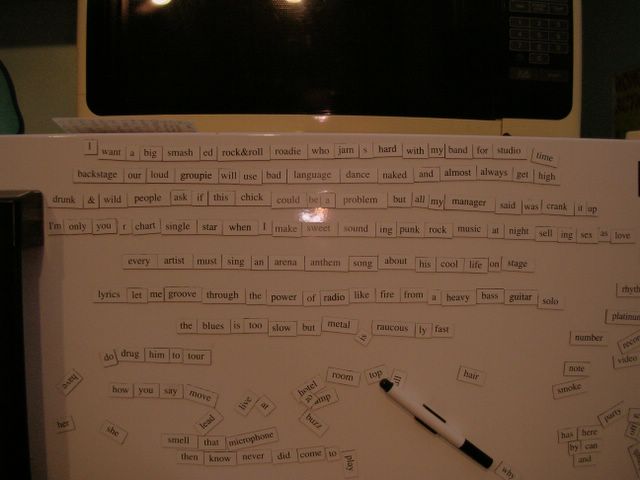 I want a big smash ed rock&roll roadie who jam s hard with my band for studio time
backstage our loud groupie will use bad language dance naked and almost always get high
drunk & wild people ask if this chick could be a problem but all my manager said was crank it up
I'm only you r chart single star when I make sweet sound ing punk rock music at night sell ing sex as love
every artist must sing an arena anthem song about his cool life on stage
lyrics let me groove through the power of radio like fire from a heavy bass guitar solo
the blues is too slow but metal is raucous ly fast
do drug him to tour
number
note
smoke
video
hair
room top
hotel
buzz
how you say move
live at
lead
have
her
she
smell that microphone
then know never did come to play
party
has here
by can
and
why